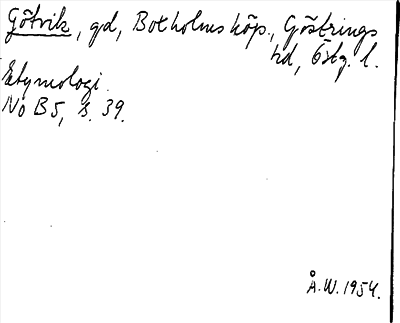 Götvik, gd, Boxholms köp., Göstrings
hd, Östg. l.
Etymologi.
No B5, s. 39.
Å.W. 1954.